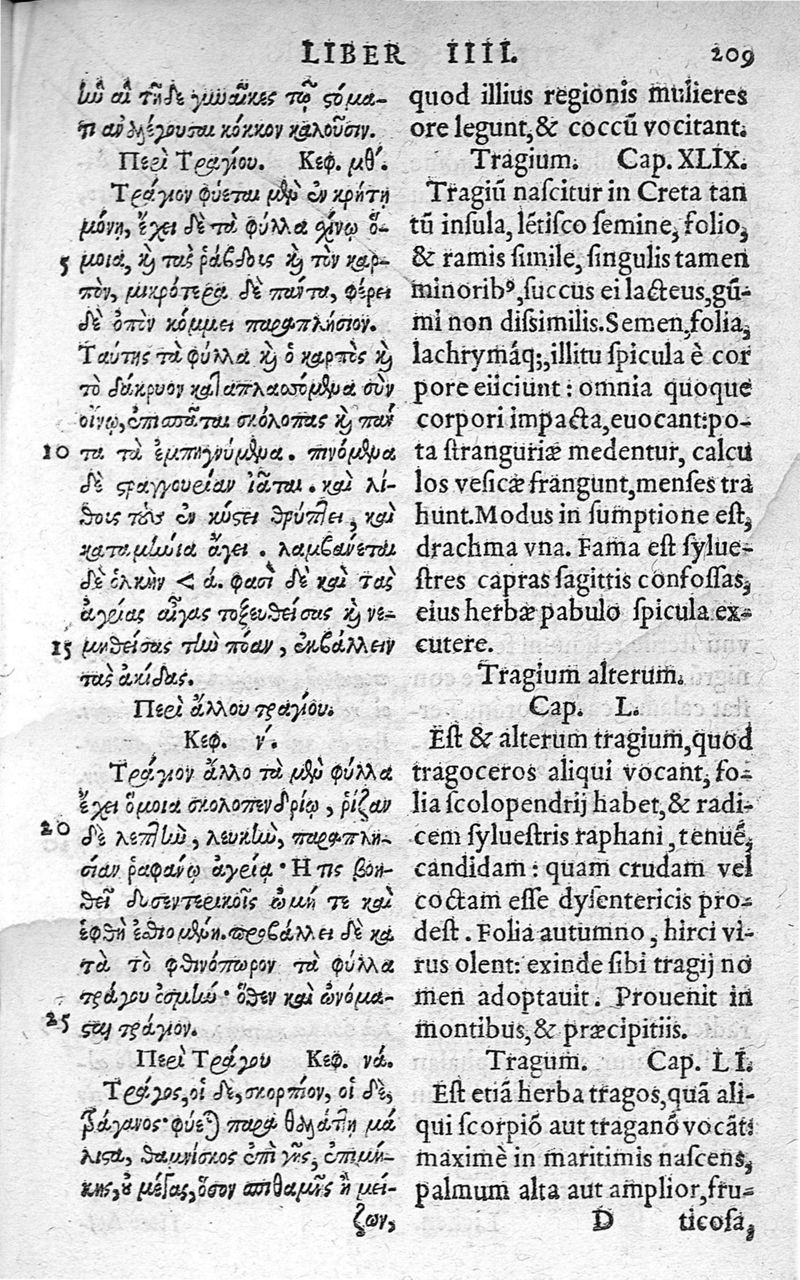 LIBER IIII. 209
ἣν αἱ τῇδε γυναῖκες τῷ στόμα-
τι ἀναλέγουσαι κόκκον καλοῦσιν.
Περὶ Τραγίου. Κεφ. μθʹ.
Τράγιον φύεται μὲν ἐν κρήτῃ
μόνῃ, ἔχει δὲ τὰ φύλλα σχίνῳ ὅ-
5 μοια, καὶ τὰς ῥάβδοις καὶ τὸν καρ-
πὸν, μικρότερα δὲ πάντα, φέρει
δὲ ὀπὸν κόμμει παραπλήσιον.
Ταύτης τὰ φύλλα καὶ ὁ καρπὸς καὶ
τὸ δάκρυον καταπλασσόμενα σὺν
οἴνῳ, ἐπισπᾶται σκόλοπας καὶ πάν
10 τα τὰ ἐμπηγνύμενα. πινόμενα
δὲ στραγγουρίαν ἰᾶται. καὶ λί-
θοις τοὺς ἐν κύστει θρύπτει, καὶ
καταμήνια ἄγει. λαμβάνεται
δὲ ὁλκὴν < ά. φασὶ δὲ καὶ τὰς
ἀγρίας αἶγας τοξευθείσας καὶ νε-
15 μηθείσας τὴν πόαν, ἐκβάλλειν
τὰς ἀκίδας.
Περὶ ἄλλου τραγίου.
Κεφ. νʹ.
Τράγιον ἄλλο τὰ μὲν φύλλα
ἔχει ὅμοια σκολοπενδρίῳ, ῥίζαν
20 δὲ λεπτὴν, λευκὴν, παραπλη-
σίαν ῥαφάνῳ ἀγρίᾳ· Ἥ τις βοη-
θεῖ δυσεντερικοῖς ὠμή τε καὶ
ἑφθὴ ἐσθιομένη. προβάλλει δὲ κα
τὰ τὸ φθινόπωρον τὰ φύλλα
τράγου ὀσμὴν· ὅθεν καὶ ὠνόμα-
25 σται τράγιον.
Περὶ Τράγου Κεφ. νά.
Τράγος, οἱ δὲ, σκορπίον, οἱ δὲ,
τράγανος· φύεται παρὰ θαλάττῃ μά
λιστα, θαμνίσκος ἐπὶ γῆς, ἐπιμή-
κης, οὐ μέγας, ὅσον σπιθαμῆς ἢ μεί-
ζων,
quod illius regionis mulieres
ore legunt, & coccū vocitant.
Tragium. Cap. XLIX.
Tragiū naſcitur in Creta tan
tū inſula, lētiſco ſemine, folio,
& ramis ſimile, ſingulis tamen
minorib⁹, ſuccus ei lacteus, gū-
mi non diſsimilis. Semen, folia,
lachrymáq;, illitu ſpicula è cor
pore eiiciunt: omnia quoque
corpori impacta, euocant: po-
ta ſtranguriæ medentur, calcu
los veſicæ frangunt, menſes tra
hunt. Modus in ſumptione eſt,
drachma vna. Fama eſt ſylue-
ſtres capras ſagittis confoſſas,
eius herbæ pabulo ſpicula ex-
cutere.
Tragium alterum.
Cap. L.
Eſt & alterum tragium, quod
tragoceros aliqui vocant, fo-
lia ſcolopendrij habet, & radi-
cem ſylueſtris raphani, tenuē,
candidam: quam crudam vel
coctam eſſe dyſentericis pro-
deſt. Folia autumno, hirci vi-
rus olent: exinde ſibi tragij no
men adoptauit. Prouenit in
montibus, & præcipitiis.
Tragum. Cap. LI.
Eſt etiā herba tragos, quā ali-
qui ſcorpiō aut traganō vocāt:
maximè in maritimis naſcens,
palmum alta aut amplior, fru-
D ticoſa,